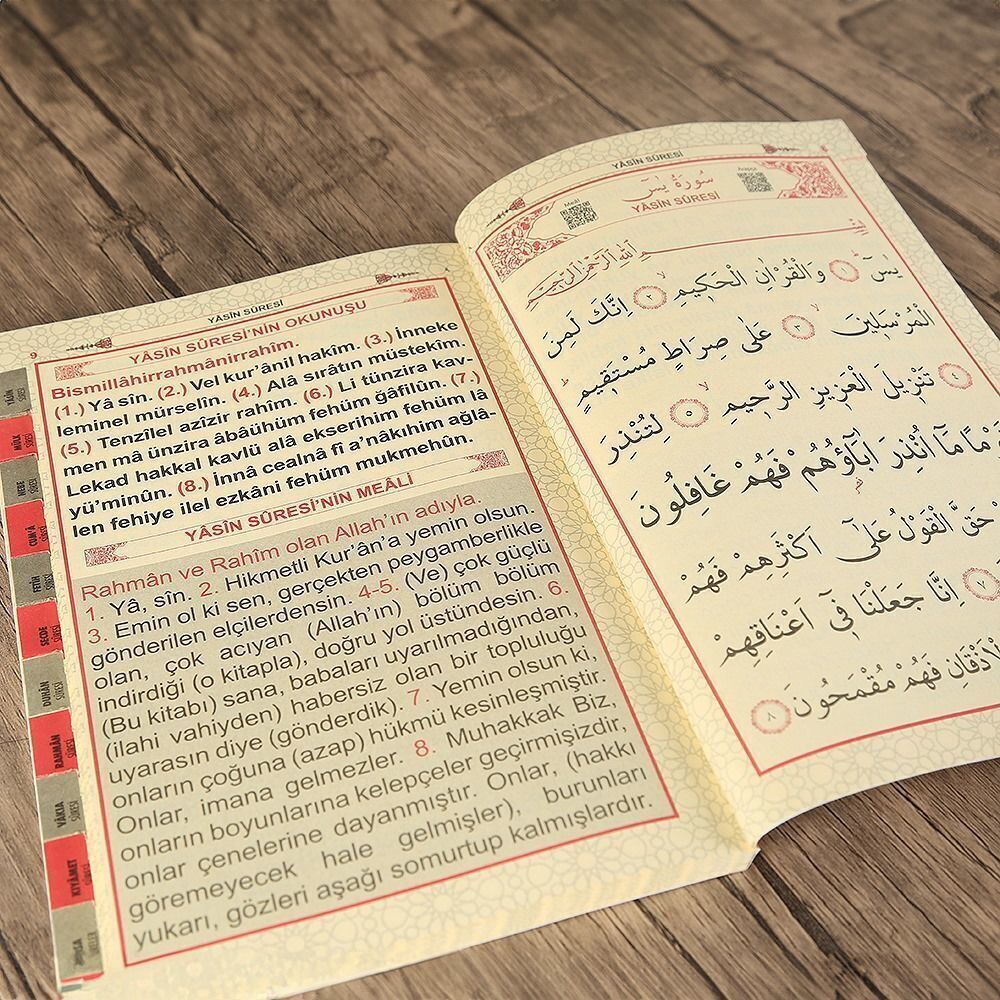 9
YÂSÎN SÛRESİ
YÂSÎN SÛRESİ'NİN OKUNUŞU
Bismillâhirrahmânirrahîm.
(1.) Yâ sîn. (2.) Vel kur'ânil hakîm. (3.) İnneke
leminel mürselîn. (4.) Alâ sırâtın müstekîm.
(5.) Tenzîlel azîzir rahîm. (6.) Li tünzira kav-
men mâ ünzira âbâühüm fehüm ğâfilûn. (7.)
Lekad hakkal kavlü alâ ekserihim fehüm lâ
yü'minûn. (8.) İnnâ cealnâ fî a'nâkıhim ağlâ-
len fehiye ilel ezkâni fehüm mukmehûn.
YÂSÎN SÛRESİ'NİN MEÂLİ
Rahmân ve Rahîm olan Allah'ın adıyla.
1. Yâ, sîn. 2. Hikmetli Kur'ân'a yemin olsun.
3. Emin ol ki sen, gerçekten peygamberlikle
gönderilen elçilerdensin. 4-5. (Ve) çok güçlü
olan, çok acıyan (Allah'ın) bölüm bölüm
indirdiği (o kitapla), doğru yol üstündesin. 6.
(Bu kitabı) sana, babaları uyarılmadığından,
(ilahi vahiyden) habersiz olan bir topluluğu
uyarasın diye (gönderdik). 7. Yemin olsun ki,
onların çoğuna (azap) hükmü kesinleşmiştir.
Onlar, imana gelmezler. 8. Muhakkak Biz,
onların boyunlarına kelepçeler geçirmişizdir,
onlar çenelerine dayanmıştır. Onlar, (hakkı
göremeyecek hale gelmişler), burunları
yukarı, gözleri aşağı somurtup kalmışlardır.
YÂSÎN SÛRESİ
MÜLK SÛRESİ
NEBE SÛRESİ
CUM'A SÛRESİ
FETİH SÛRESİ
SECDE SÛRESİ
DUHÂN SÛRESİ
RAHMÂN SÛRESİ
VÂKIA SÛRESİ
KIYÂMET SÛRESİ
YÂSÎN SÛRESİ
Meâli
Arapça
سُورَةُ يٰسٓ
YÂSÎN SÛRESİ
بِسْمِ اللّٰهِ الرَّحْمٰنِ الرَّحٖيمِ
يٰسٓ ﴿١﴾ وَالْقُرْاٰنِ الْحَكٖيمِ ﴿٢﴾ اِنَّكَ لَمِنَ
الْمُرْسَلٖينَ ﴿٣﴾ عَلٰى صِرَاطٍ مُسْتَقٖيمٍ
تَنْزٖيلَ الْعَزٖيزِ الرَّحٖيمِ ﴿٥﴾ لِتُنْذِرَ
مَٓا اُنْذِرَ اٰبَٓاؤُهُمْ فَهُمْ غَافِلُونَ
حَقَّ الْقَوْلُ عَلٰٓى اَكْثَرِهِمْ فَهُمْ
﴿٧﴾ اِنَّا جَعَلْنَا فٖٓي اَعْنَاقِهِمْ
الْاَذْقَانِ فَهُمْ مُقْمَحُونَ ﴿٨﴾